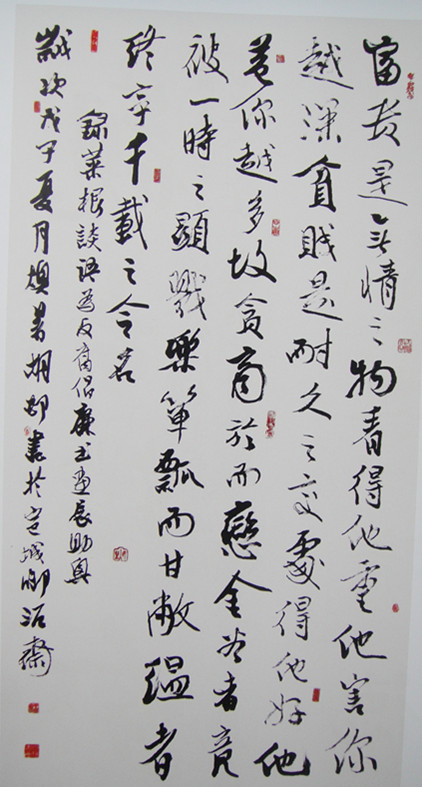 富貴是無情之物看得他重他害你
越深貧賤是耐久之交處得他好他
益你越多故貪商於而戀金谷者竟
被一時之顯戮樂箪瓢而甘敝緼者
終享千載之令名
錄菜根談語為反腐倡廉書畫展助興
歲次戊子夏月 暑胡 書於宣城 齋